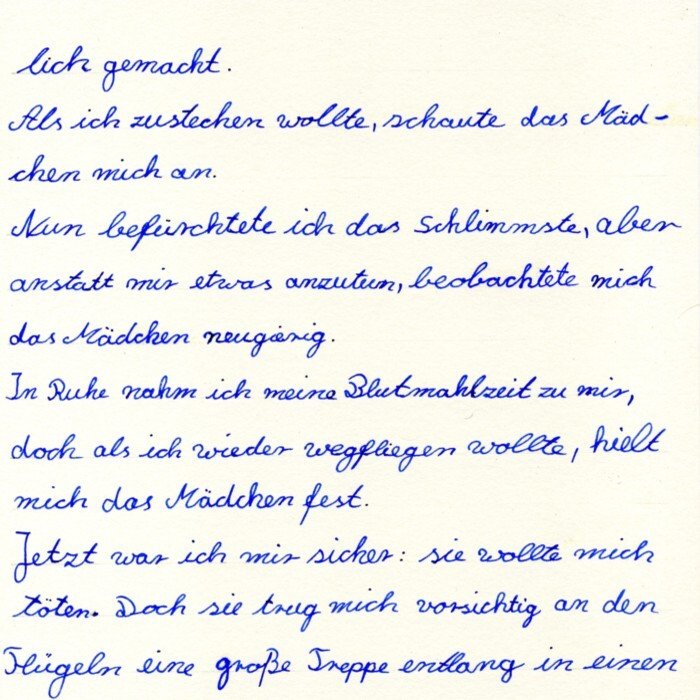 lich gemacht.
Als ich zustechen wollte, schaute das Mäd-
chen mich an.
Nun befürchtete ich das Schlimmste, aber
anstatt mir etwas anzutun, beobachtete mich
das Mädchen neugierig.
In Ruhe nahm ich meine Blutmahlzeit zu mir,
doch als ich wieder wegfliegen wollte, hielt
mich das Mädchen fest.
Jetzt war ich mir sicher: sie wollte mich
töten. Doch sie trug mich vorsichtig an den
Flügeln eine große Treppe entlang in einen